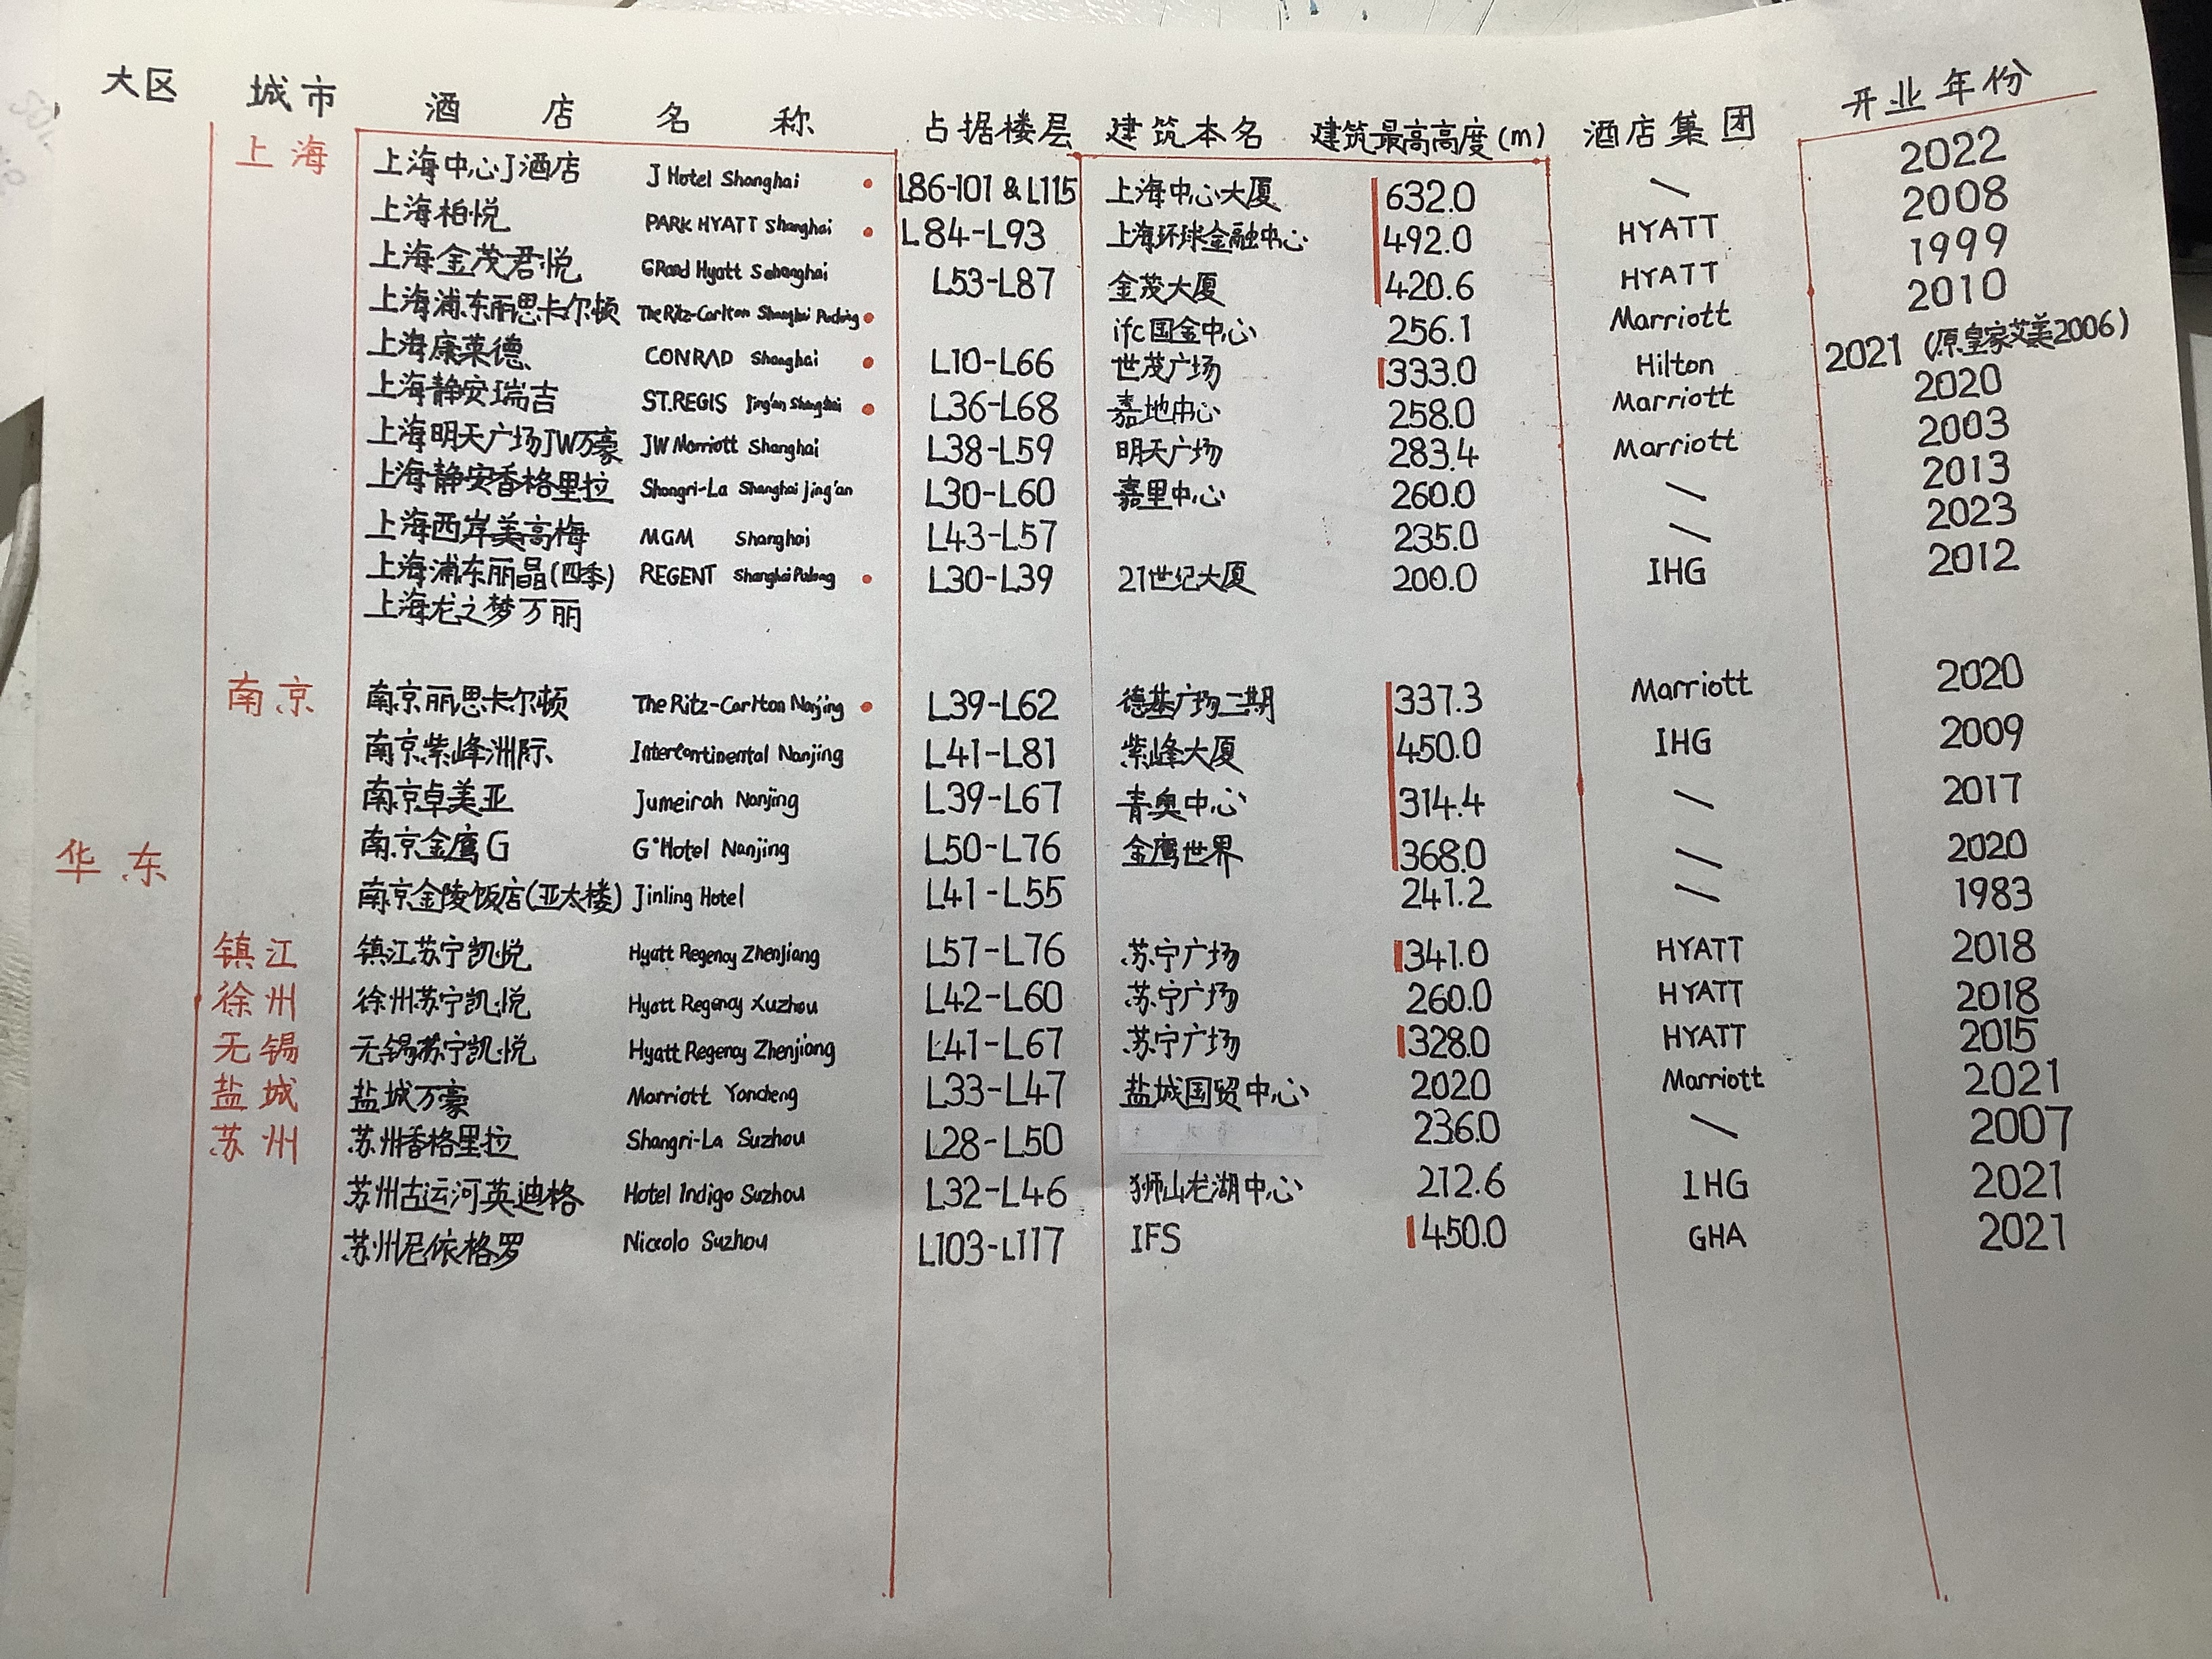 大区 城市 酒店名称 占据楼层 建筑本名 建筑最高高度(m) 酒店集团 开业年份
上海 上海中心J酒店 J Hotel Shanghai L86-101 & L115 上海中心大厦 632.0 \ 2022
上海柏悦 PARK HYATT Shanghai L84-L93 上海环球金融中心 492.0 HYATT 2008
上海金茂君悦 GRand Hyatt Sehanghai L53-L87 金茂大厦 420.6 HYATT 1999
上海浦东丽思卡尔顿 The Ritz-Carlton Shanghai Pudong ifc国金中心 256.1 Marriott 2010
上海康莱德 CONRAD Shanghai L10-L66 世茂广场 333.0 Hilton 2021 (原皇家艾美2006)
上海静安瑞吉 ST.REGIS Jing'an Shanghai L36-L68 嘉地中心 258.0 Marriott 2020
上海明天广场JW万豪 JW Marriott Shanghai L38-L59 明天广场 283.4 Marriott 2003
上海静安香格里拉 Shangri-La Shanghai jing'an L30-L60 嘉里中心 260.0 \ 2013
上海西岸美高梅 MGM Shanghai L43-L57 235.0 \ 2023
上海浦东丽晶(四季) REGENT Shanghai Pudong L30-L39 21世纪大厦 200.0 IHG 2012
上海龙之梦万丽
南京 南京丽思卡尔顿 The Ritz-Carlton Nanjing L39-L62 德基广场二期 337.3 Marriott 2020
南京紫峰洲际 Intercontinental Nanjing L41-L81 紫峰大厦 450.0 IHG 2009
南京卓美亚 Jumeirah Nanjing L39-L67 青奥中心 314.4 \ 2017
华东 南京金鹰G G·Hotel Nanjing L50-L76 金鹰世界 368.0 \ 2020
南京金陵饭店(亚太楼) Jinling Hotel L41-L55 241.2 \ 1983
镇江 镇江苏宁凯悦 Hyatt Regency Zhenjiang L57-L76 苏宁广场 341.0 HYATT 2018
徐州 徐州苏宁凯悦 Hyatt Regency Xuzhou L42-L60 苏宁广场 260.0 HYATT 2018
无锡 无锡苏宁凯悦 Hyatt Regency Zhenjiang L41-L67 苏宁广场 328.0 HYATT 2015
盐城 盐城万豪 Marriott Yancheng L33-L47 盐城国贸中心 2020 Marriott 2021
苏州 苏州香格里拉 Shangri-La Suzhou L28-L50 236.0 \ 2007
苏州古运河英迪格 Hotel Indigo Suzhou L32-L46 狮山龙湖中心 212.6 IHG 2021
苏州尼依格罗 Niccolo Suzhou L103-L117 IFS 450.0 GHA 2021